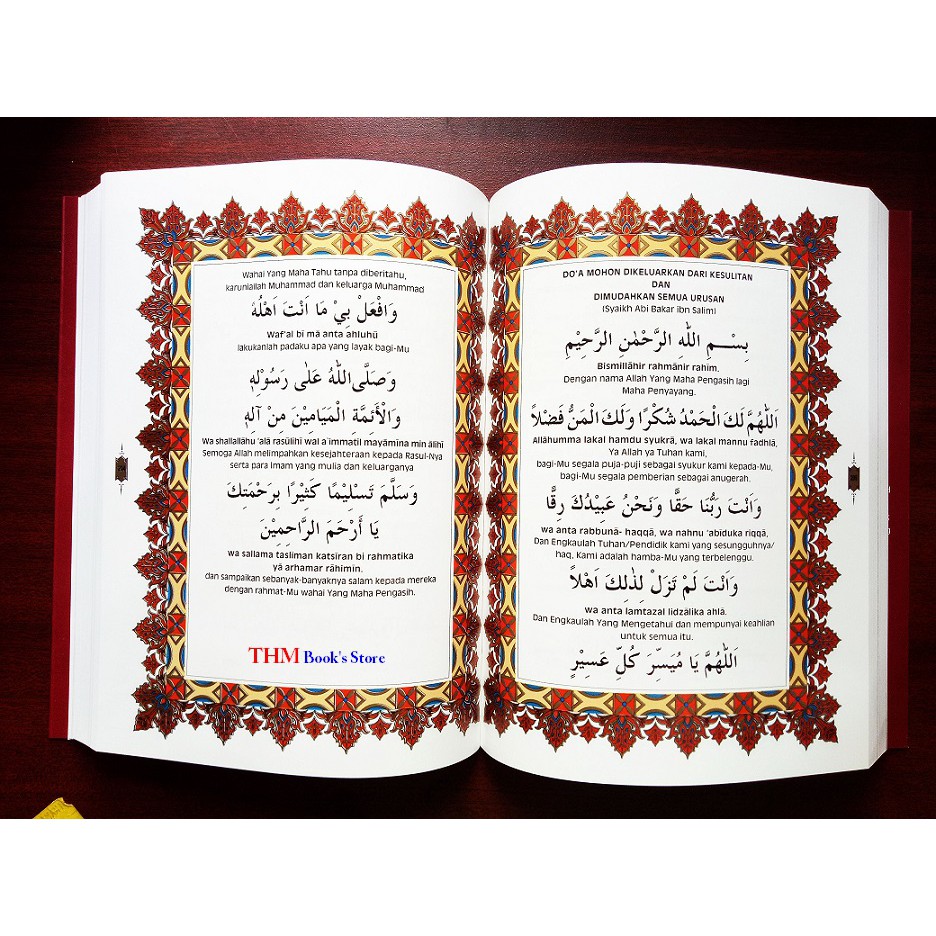 Wahai Yang Maha Tahu tanpa diberitahu,
karuniallah Muhammad dan keluarga Muhammad
وَافْعَلْ بِيْ مَا اَنْتَ اَهْلُهُ
Waf'al bī mā anta ahluhū
lakukanlah padaku apa yang layak bagi-Mu
وَصَلَّى اللهُ عَلٰى رَسُوْلِهِ
وَالْأَئِمَّةِ الْمَيَامِيْنَ مِنْ آلِهِ
wa shallallāhu 'alā rasūlihī wal a'immatil mayāmīna min ālihī
Semoga Allah melimpahkan kesejahteraan kepada Rasul-Nya
serta para Imam yang mulia dan keluarganya
وَسَلَّمَ تَسْلِيْمًا كَثِيْرًا بِرَحْمَتِكَ
يَا أَرْحَمَ الرَّاحِمِيْنَ
wa sallama tasliman katsiran bi rahmatika
yā arhamar rāhimīn.
dan sampaikan sebanyak-banyaknya salam kepada mereka
dengan rahmat-Mu wahai Yang Maha Pengasih.
THM Book's Store
DO'A MOHON DIKELUARKAN DARI KESULITAN
DAN
DIMUDAHKAN SEMUA URUSAN
(Syaikh Abi Bakar ibn Salim)
بِسْمِ اللهِ الرَّحْمٰنِ الرَّحِيْمِ
Bismillāhir rahmānir rahīm.
Dengan nama Allah Yang Maha Pengasih lagi
Maha Penyayang.
اَللّٰهُمَّ لَكَ الْحَمْدُ شُكْرًا وَلَكَ الْمَنُّ فَضْلاً
Allāhumma lakal hamdu syukrā, wa lakal mannu fadhlā,
Ya Allah ya Tuhan kami,
bagi-Mu segala puja-puji sebagai syukur kami kepada-Mu,
bagi-Mu segala pemberian sebagai anugerah.
وَاَنْتَ رَبُّنَا حَقًّا وَنَحْنُ عَبِيْدُكَ رِقًّا
wa anta rabbunā- haqqā, wa nahnu 'abiduka riqqā,
Dan Engkaulah Tuhan/Pendidik kami yang sesungguhnya/
haq, Kami adalah hamba-Mu yang terbelenggu.
وَاَنْتَ لَمْ تَزَلْ لِذٰلِكَ اَهْلاً
wa anta lamtazal lidzālika ahlā.
Dan Engkaulah Yang Mengetahui dan mempunyai keahlian
untuk semua itu.
اَللّٰهُمَّ يَا مُيَسِّرَ كُلِّ عَسِيْرٍ